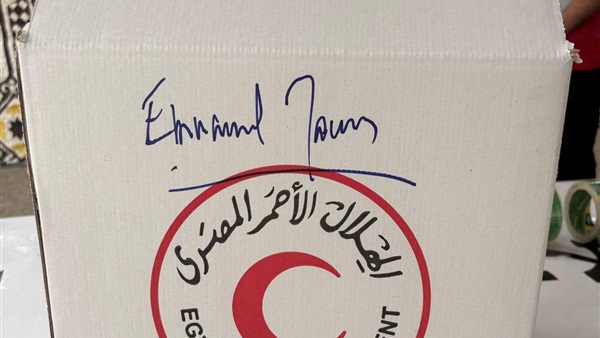 Emmanuel
الهلال الأحمر المصرى
EG
ENT